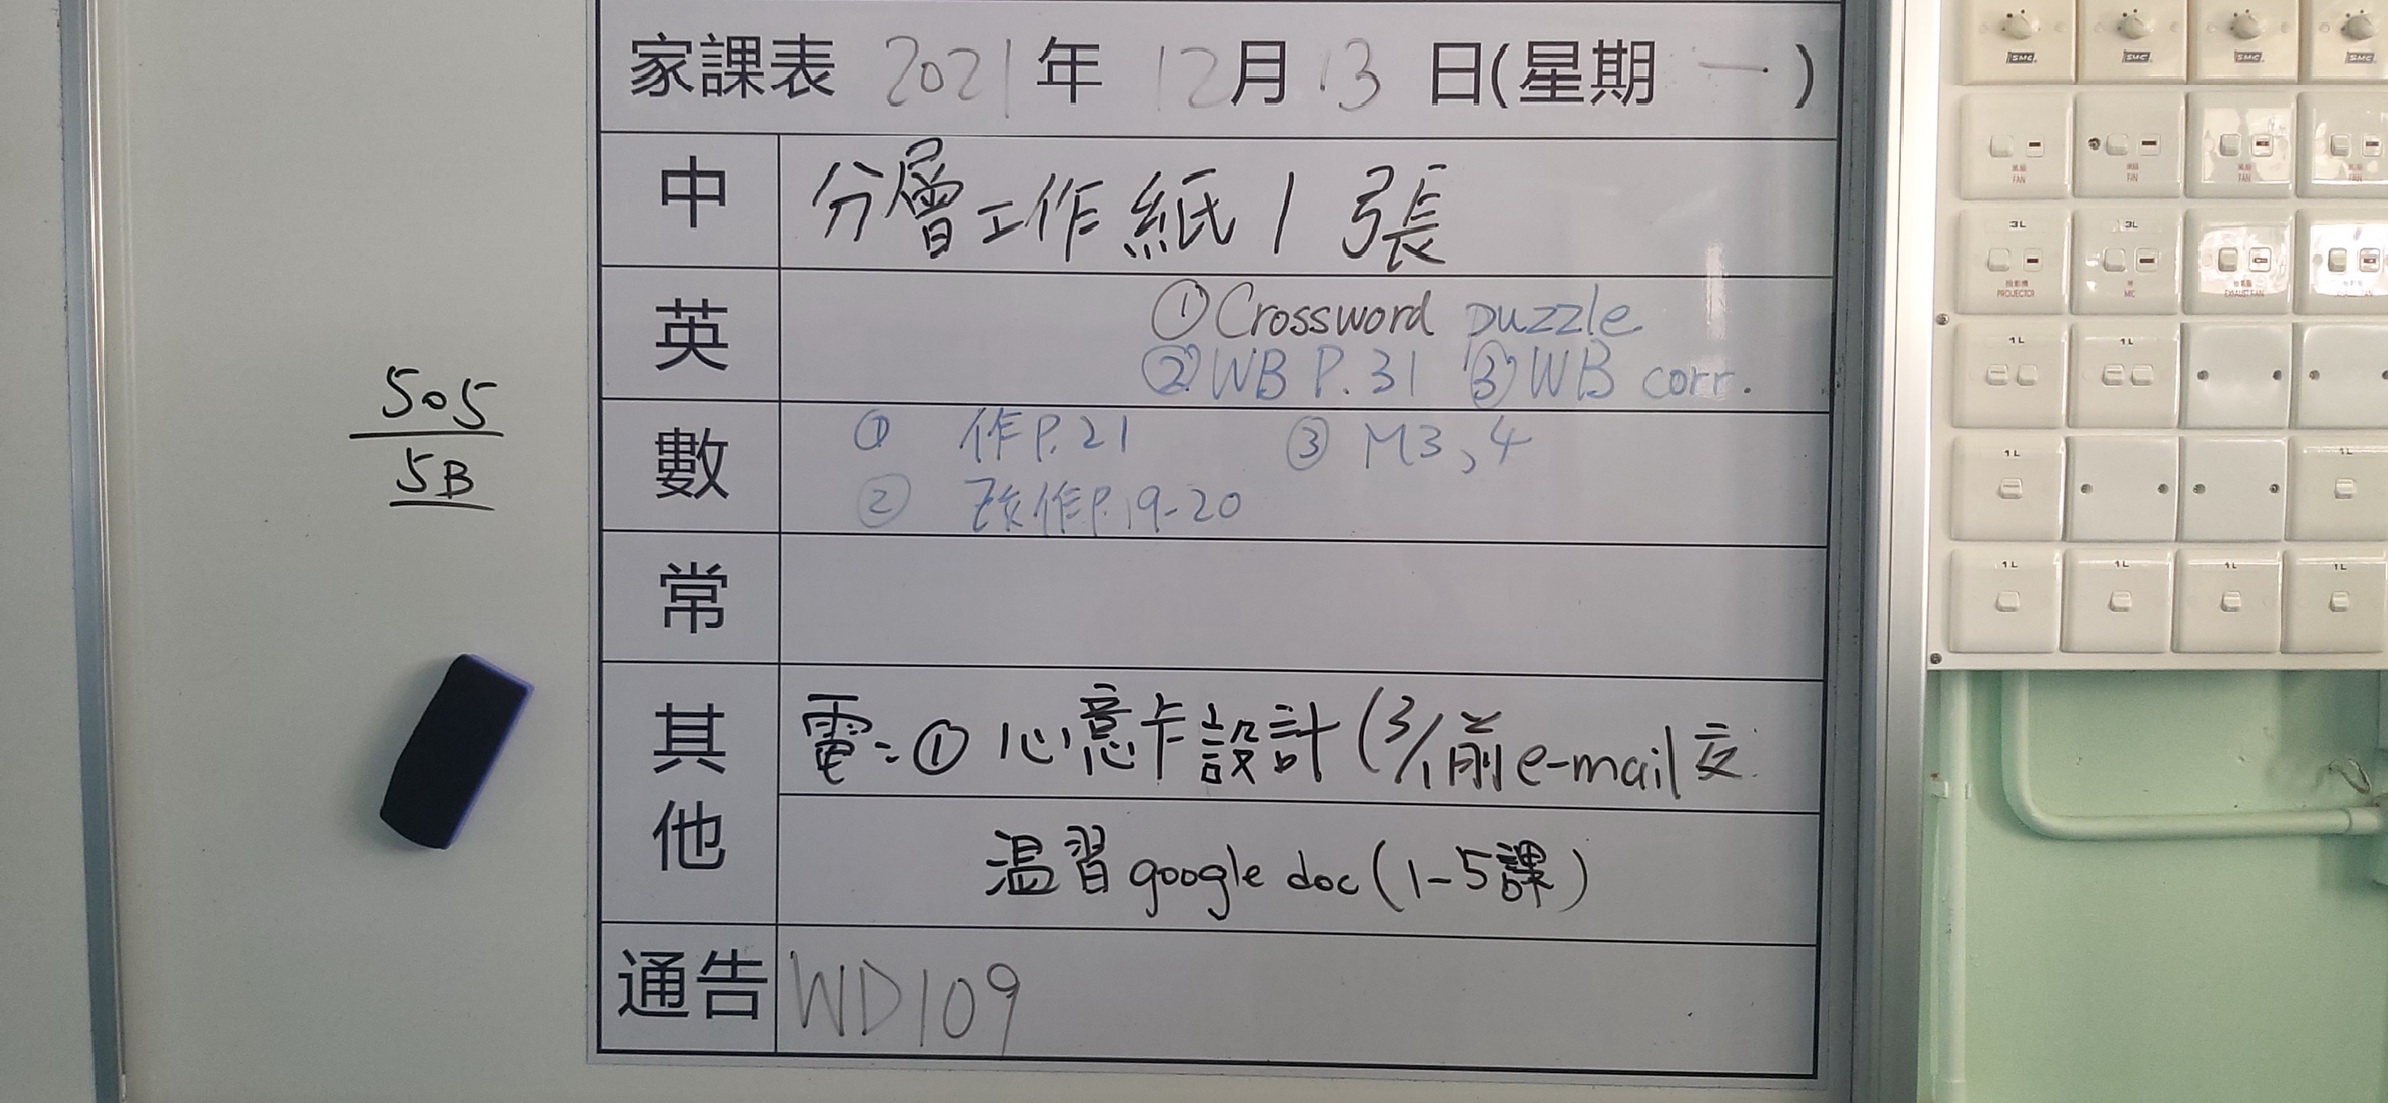 家課表 2021年 12月13日(星期一)
中 分層工作紙1張
英 ①Crossword puzzle
②WB P.31 ③WB corr.
數 ① 作P.21 ③ M3、4
② 改作P.19-20
常
其他 電：① 心意卡設計(3/1前e-mail交
溫習google doc(1-5課)
通告 WD109
505
5B
SMC SMC SMC SMC
風扇 FAN FAN 風扇 FAN FAN
3L 3L
投影機 PROJECTOR MIC EXHAUST FAN
1L 1L
1L 1L
1L 1L 1L 1L